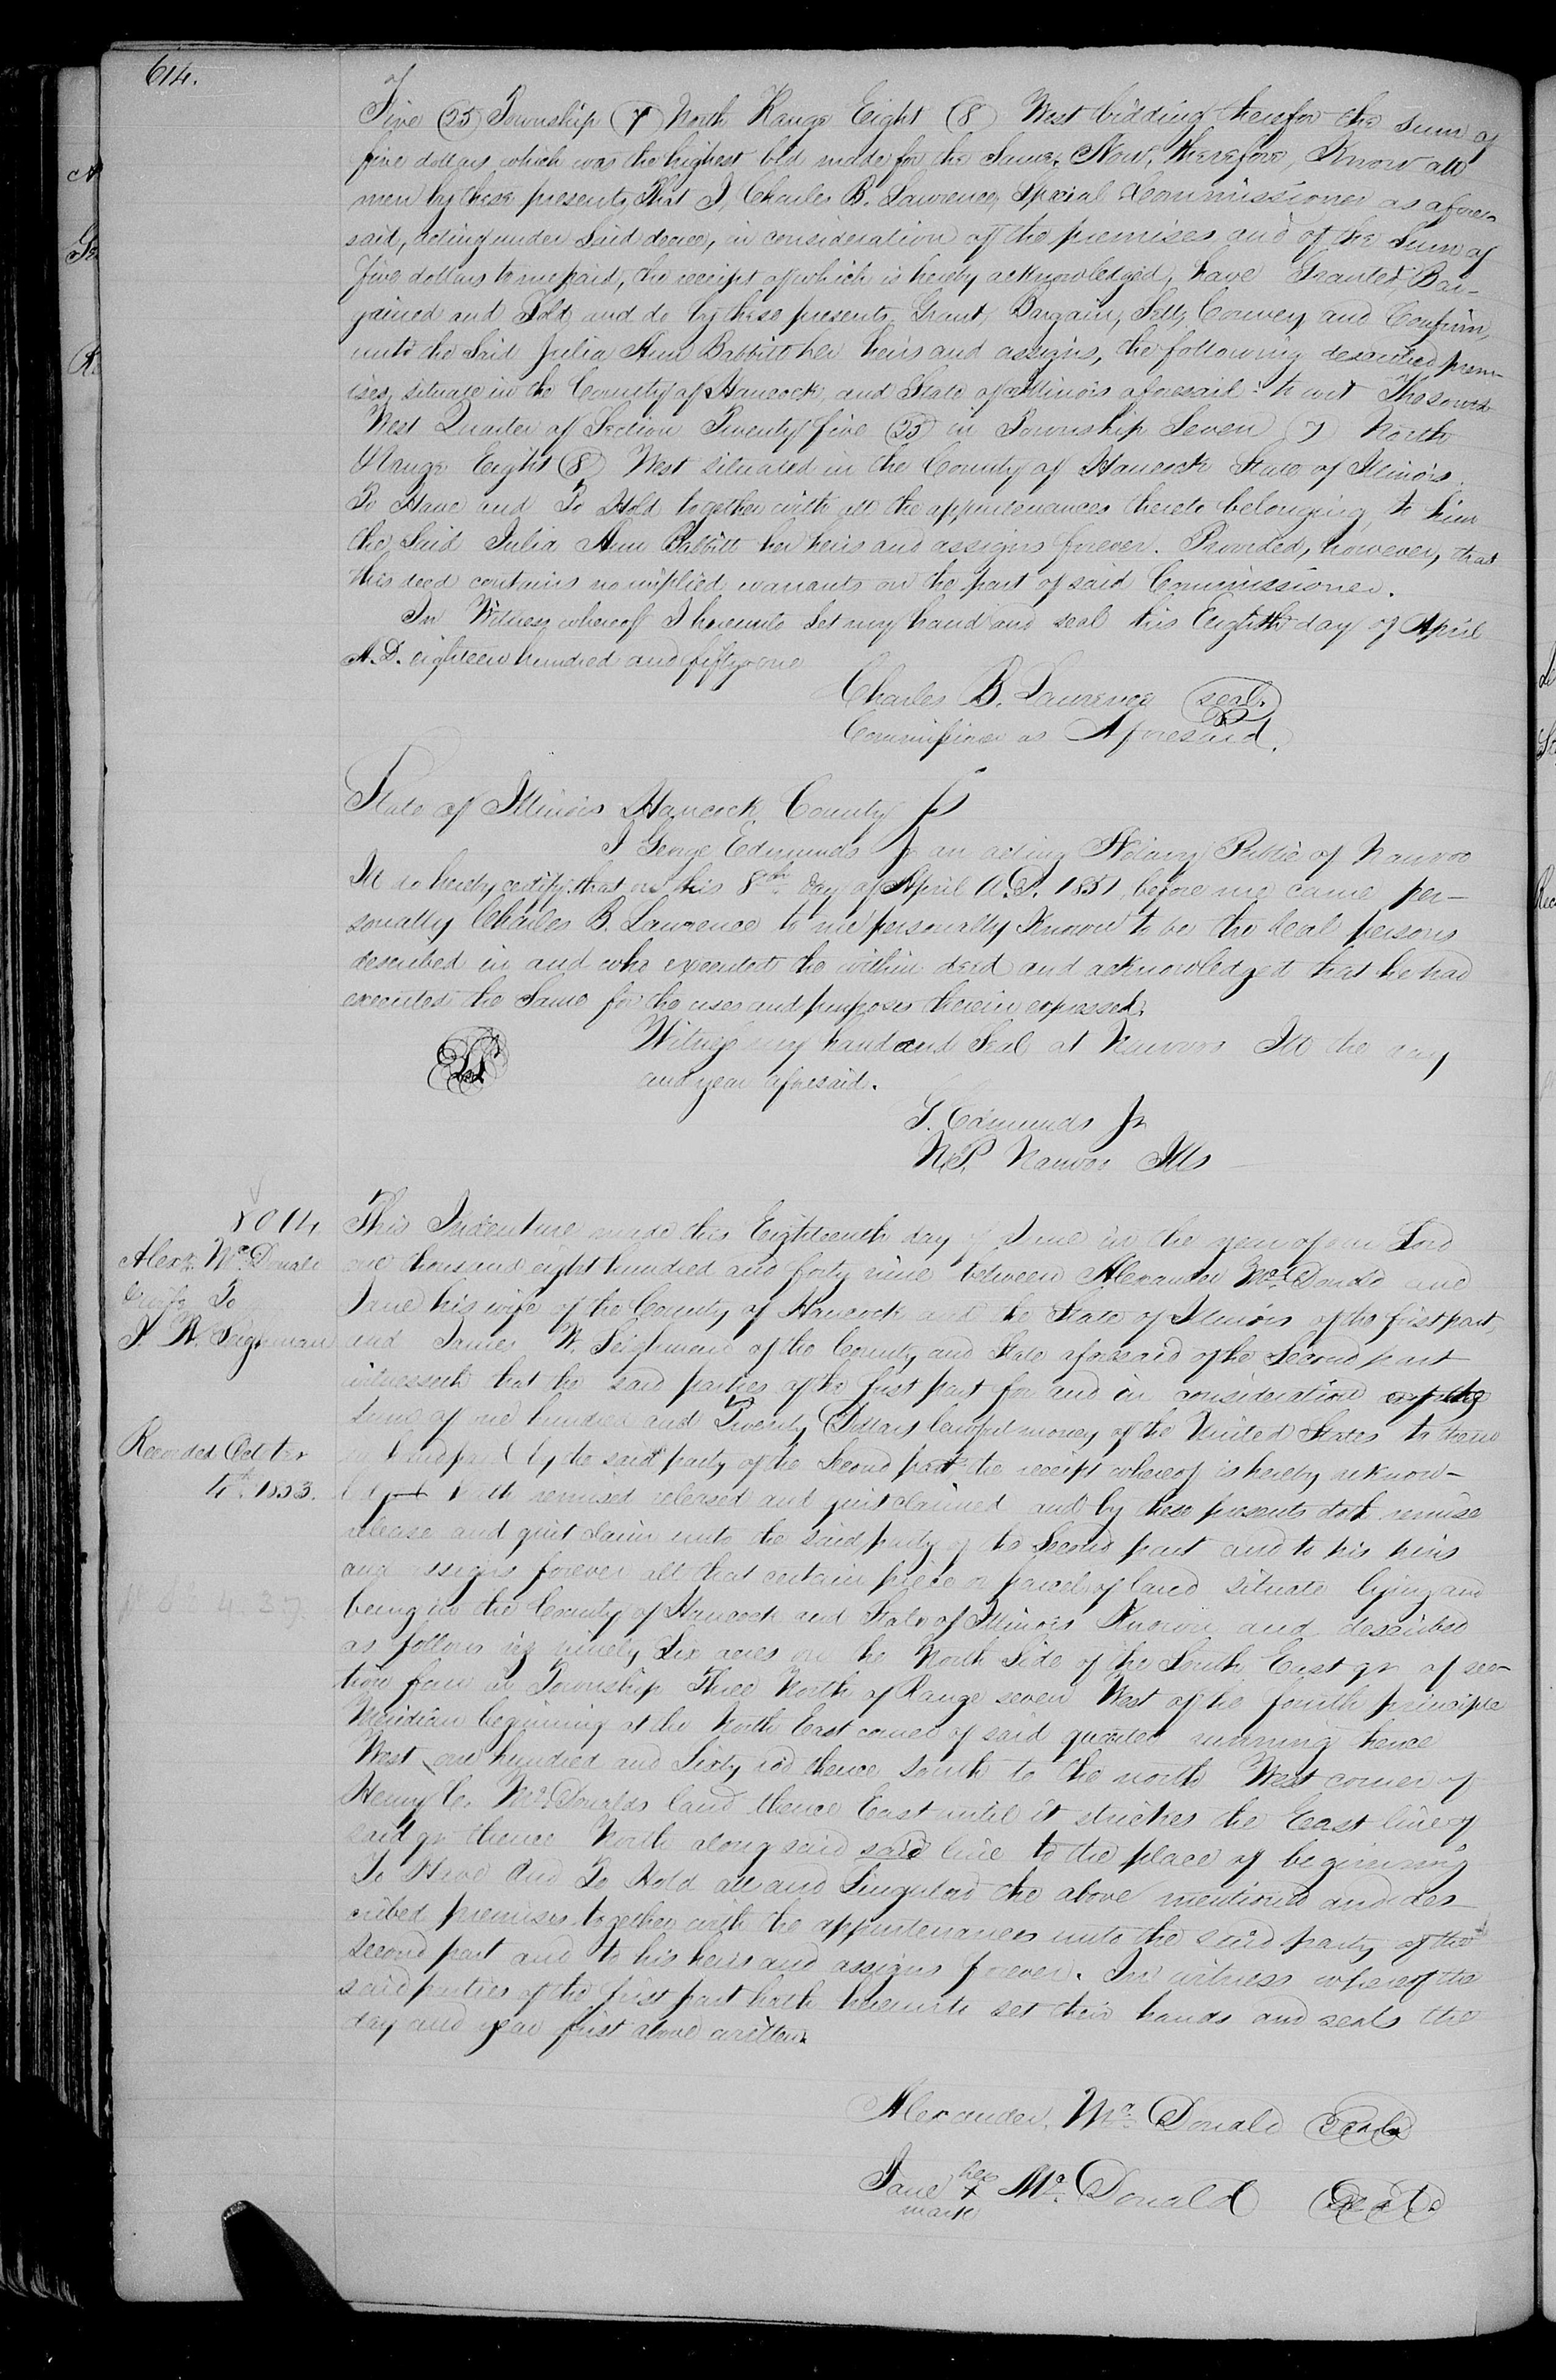 614.
of
Five (25) Township (7) North Range Eight (8) West bidding therefor the sum of
five dollars which was the highest bid made for the Same; Now, therefore, Know all
men by these presents, That I, Charles B. Lawrence, Special Commissioner as afore-
said, acting under said decree, in consideration of the premises and of the Sum of
five dollars to me paid, the receipt of which is hereby acknowledged, have Granted, Bar-
gained and Sold and do by these presents, Grant, Bargain, Sell, Convey and Confirm,
unto the Said Julia Ann Babbitt her heirs and assigns, the following described prem-
ises, situate in the County of Hancock, and State of Illinois aforesaid: to wit The South
West Quarter of Section Twenty five (25) in Township Seven (7) North
Range Eight (8) West situated in the County of Hancock State of Illinois.
To Have and To Hold together with all the appurtenances thereto belonging, to him
the Said Julia Ann Babbitt her heirs and assigns forever. Provided, however, that
this deed contains no implied warrants on the part of said Commissioner.
In Witness whereof I hereunto Set my hand and seal this Eighth day of April
A.D. eighteen hundred and fifty one
Charles B. Lawrence seal
Commissioner as Aforesaid.
State of Illinois Hancock County Ss
I George Edmunds Jr an acting Notary Public of Nauvoo
Ill do hereby certify that on this 8th day of April A.D. 1851, before me came per-
sonally Charles B. Lawrence to me personally Known to be the Real persons
described in and who executed the within deed and acknowledged that he had
executed the Same for the uses and purposes therein expressed.
Witness my hand and Seal at Nauvoo Ill the day
and year aforesaid.
G. Edmunds Jr
N.P. Nauvoo Ills
8014
Alexr. Mc.Donald
& wife To
J. W. Seighman
Recorded October
4th 1853.
This Indenture made this Eighteenth day of June in the year of our Lord
one thousand eight hundred and forty nine between Alexander Mc.Donald and
Jane his wife of the County of Hancock and the State of Illinois of the first part,
and James W. Seighman of the County and State aforesaid of the Second part
witnesseth that the said parties of the first part for and in consideration of the
Sum of one hundred and Twenty Dollars lawful money of the United States to them
in hand paid by the said party of the Second part the receipt whereof is hereby acknow-
ledged hath remised released and quit claimed and by these presents doth remise
release and quit claim unto the said party of the Second part and to his heirs
and assigns forever all that certain piece or parcel of land situate lying and
being in the County of Hancock and State of Illinois Known and described
as follows viz ninety Six acres on the North Side of the South East qr of sec-
tion four in Township Three North of Range seven West of the fourth principle
Meridian beginning at the North East corner of said quarter running thence
West one hundred and Sixty rod thence South to the north West corner of
Henry C. Mc.Donalds land thence East until it strikes the East line of
said qr thence North along said said line to the place of beginning
To Have And To Hold all and Singular the above mentioned and des-
cribed premises together with the appurtenances unto the said party of the
second part and to his heirs and assigns forever. In witness whereof the
said parties of the first part hath hereunto set their hands and seals the
day and year first above written.
Alexander Mc. Donald Seal
her
Jane x Mc. Donald Seal
mark